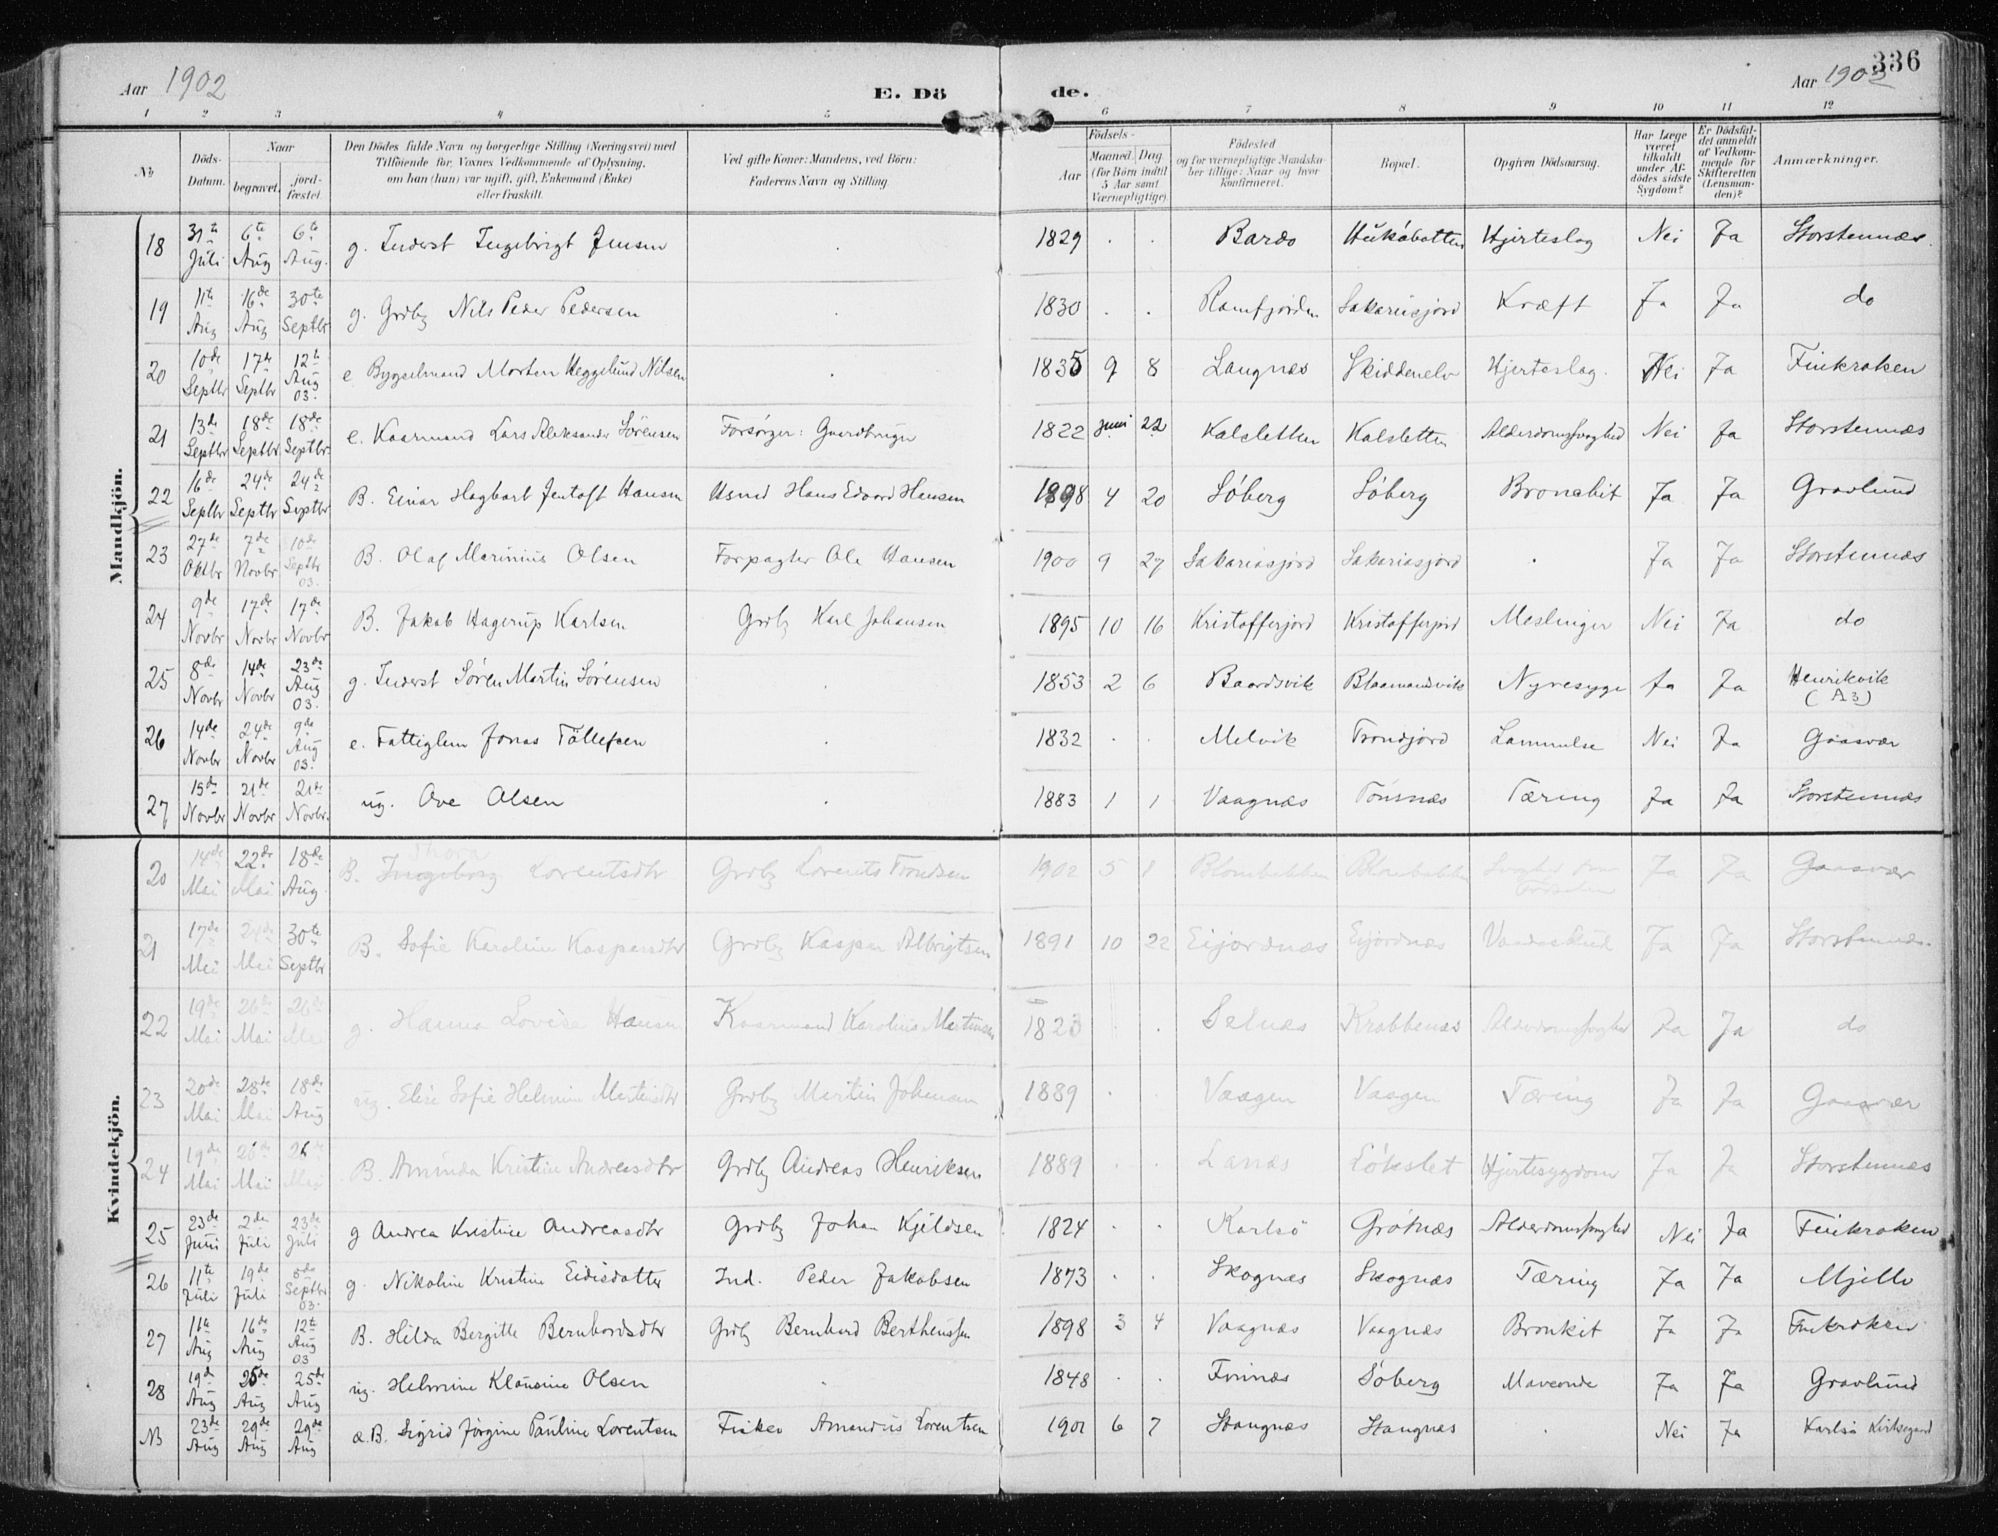 336
Aar 1902 E. Dö de. Aar 1902
1 2 3 4 5 6 7 8 9 10 11 12
No
Döds-Datum.
Naar
begravet.
jord-fæstet.
Den Dödes fulde Navn og borgerlige Stilling (Næringsvei) med
Tilföiende for Voxnes Vedkommende af Oplysning,
om han (hun) var ugift, gift, Enkemand (Enke)
eller fraskilt.
Ved gifte Koner: Mandens, ved Börn:
Faderens Navn og Stilling.
Födsels-
Aar
Maaned. Dag
(for Börn indtil
5 Aar samt
Værnepligtige)
Födested
og for værnepligtige Mandska-
ber tillige: Naar og hvor
konfirmeret.
Bopæl.
Opgiven Dödsaarsag.
Har Læge
været
tilkaldt
under Af-
dödes sidste
Sygdom?
Er Dödsfal-
det anmeldt
af Vedkom-
mende for
Skifteretten
(Lensman-
den)?
Anmærkninger.
Mandkjön.
18 31te Juli 6te Aug 6te Aug. g. Inderst Ingebrigt Jensen . 1829 . . Bardo Hjerteslag Nei Ja Storstennæs.
19 11te Aug 16de Aug 30te Septbr g. Grdbg Nils Peder Pedersen . 1830 . . Ramfjorden Sakariasjord Kræft Ja Ja do
20 10de Septbr 17de Septbr 12te Aug 03. e Bygselmand Morten Heggelund Nilsen . 1835 9 8 Langnæs Skiddenelv Hjerteslag. Nei Ja Finkroken
21 13de Septbr 18de Septbr 18de Septbr. e. Kaarmand Lars Aleksander Sörensen Forsörger: Gaardbruger 1822 juni 22 Kalsletten Kalsletten Alderdomssvaghed Nei Ja Storstennæs
22 16de Septbr 24de Septbr 24de Septbr B. Einar Hagbart Jentoft Hansen Usmd Hans Edvard Hansen 1898 4 20 Söberg Söberg Bronchit Ja Ja Gravlund
23 27de Oktbr 7de Novbr 10de Septbr 03. B. Olaf Marinius Olsen Forpagter Ole Hansen 1900 9 27 Sakariasjord Sakariasjord . Ja Ja Storstennæs
24 9de Novbr 17de Novbr 17de Novbr B. Jakob Hagerup Karlsen Grdbg Karl Johansen 1895 10 16 Kristofferjord Kristofferjord Meslinger Nei Ja do
25 8de Novbr 14de Novbr 23de Aug 03. g. Inderst Sören Martin Sörensen . 1853 2 6 Baardsvik Blaamandsvik Nyresyge Ja Ja Henrikvik
(A3)
26 14de Novbr 24de Novbr 9de Aug 03. e. Fattiglem Jonas Töllefsen . 1832 . . Melvik Trondjord Lammelse Nei Ja Gaasvær
27 15de Novbr 21de Novbr 21de Novbr. ug. Ove Olsen . 1883 1 1 Vaagnæs Tönsnæs Tæring Ja Ja Storstennæs
Kvindekjön.
20 14de Mai 22de Mai 18de Aug. B. Ingeborg Thora Lorentsdtr Grdbg Lorents Trondsen 1902 5 1 Ja Ja Gaasvær
21 17de Mai 24de Mai 30te Septbr B. Sofie Karoline Kasparsdtr Grdbg Kaspar Albrigtsen 1891 10 22 Eijordnæs Eijordnæs Ja Ja Storstennæs.
22 19de Mai 26de Mai 26de Mai g. Hanna Lovise Hansen Kaarmand Karolius Martinsen . . Selnæs Krabbenæs Alderdomssvaghed Ja Ja do
23 20de Mai 28de Mai 18de Aug ug. Elise Sofie Helmine Martinsdtr Grdbg Martin Johansen 1889 . . Vaagen Vaagen Tæring Ja Ja Gaasvær
24 19de Mai 26de Mai 26 Mai B. Aminda Kristine Andreasdtr Grdbg Andreas Henriksen 1889 . . Lanæs Lökslet Hjertesygdom Ja Ja Storstennæs
25 23de Juni 2den Juli 23de Juli g Andrea Kristine Andreasdtr Grdbg Johan Kjeldsen 1824 . . Karlsö Grötnæs Alderdomssvaghed Nei Ja Finkroken
26 11te Juli 19de Juli 6de Septbr 03. g. Nikoline Kristine Eidisdatter Ind. Peder Jakobsen 1873 . . Skognæs Skognæs Tæring Ja Ja Mjelle
27 11te Aug 16de Aug 12te Aug 03 B. Hilda Bergitte Bernhardsdtr Grdbg Bernhard Bertheussen 1898 3 4 Vaagnæs Vaagnæs Bronkit Ja Ja Finkroken
28 19de Aug 25de Aug 25de Aug ug. Helmine Klausine Olsen . 1848 . . Finnæs Söberg Maveonde Ja Ja Gravlund
NB 23de Aug 29de Aug 29de Aug æ.B. Sigrid Jörgine Pauline Lorentsen Fisker Amandus Lorentsen 1901 6 7 Stangnæs Stangnæs . Nei Ja Karlsö Kirkegaard